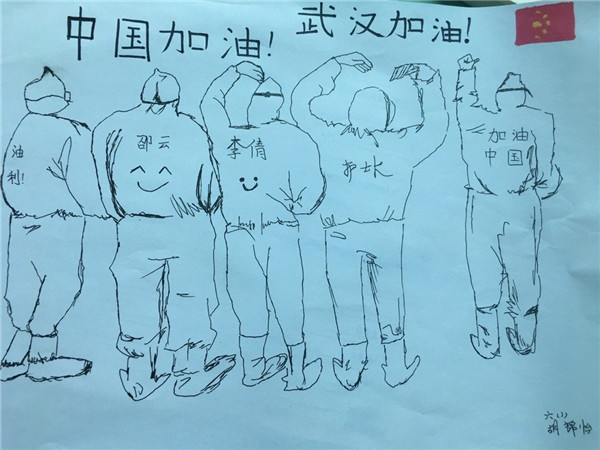 中国加油!
武汉加油!
油
利!
邵云
李倩
护士长
加油
中国
六(1)
胡锦怡